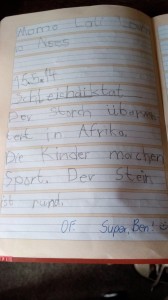 Mama Lol
15.5.14
Schleichdiktat
Der Storch überwin
tert in Afrika.
Die Kinder machen
Sport. Der Stein
ist rund.
OF Super, Ben!